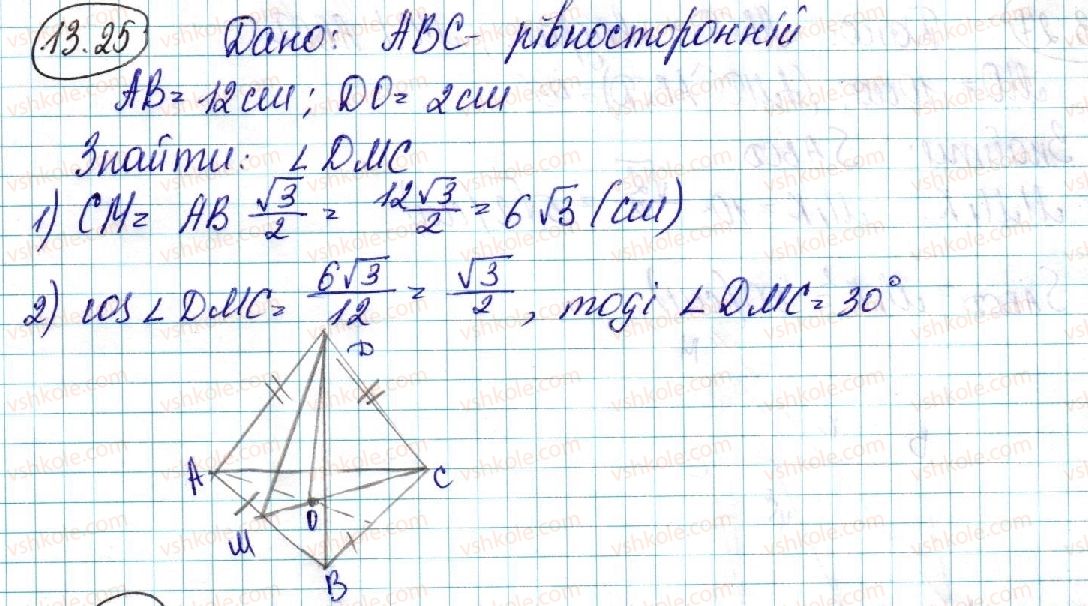 13.25 Дано: ABC - рівносторонній
AB = 12 см; DO = 2 см
Знайти: ∠DMC
1) CM = AB √3/2 = 12√3/2 = 6√3 (см)
2) cos∠DMC = 6√3/12 = √3/2, тоді ∠DMC = 30°
D
A
C
O
M
B